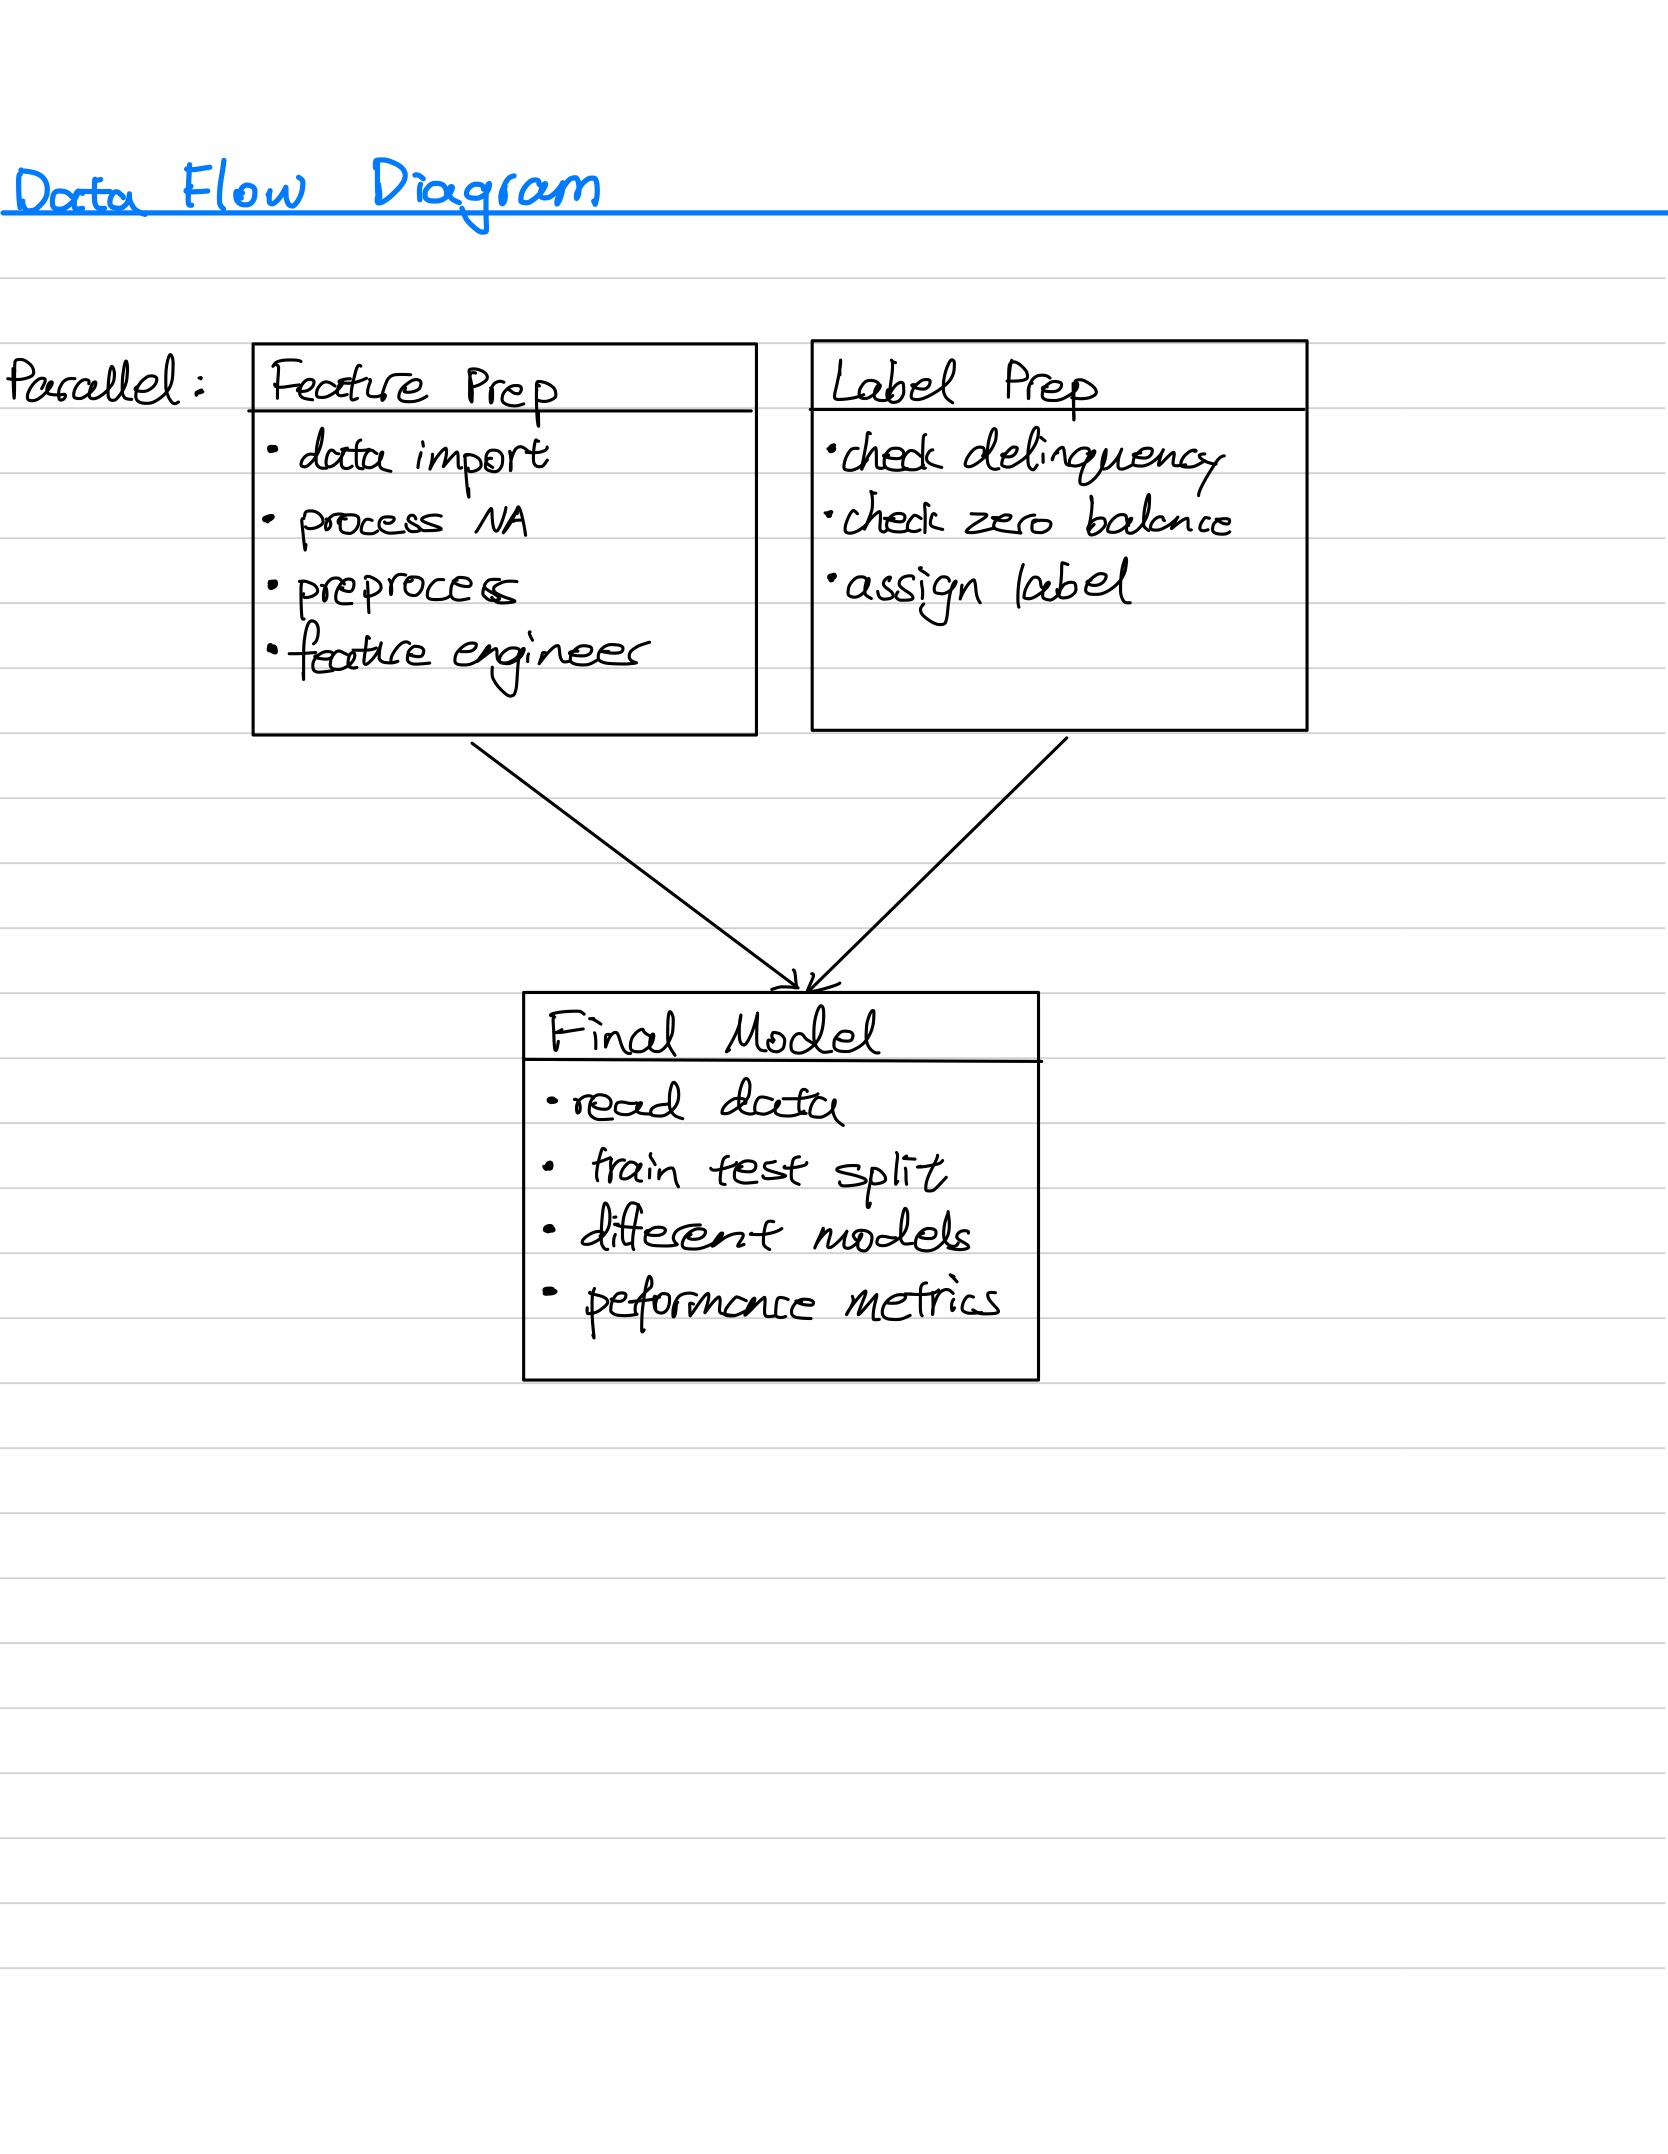 Data Flow Diagram
Parallel:
Feature Prep
• data import
• process NA
• preprocess
• feature engineer
Label Prep
• check delinquency
• check zero balance
• assign label
Final Model
• read data
• train test split
• different models
• peformance metrics